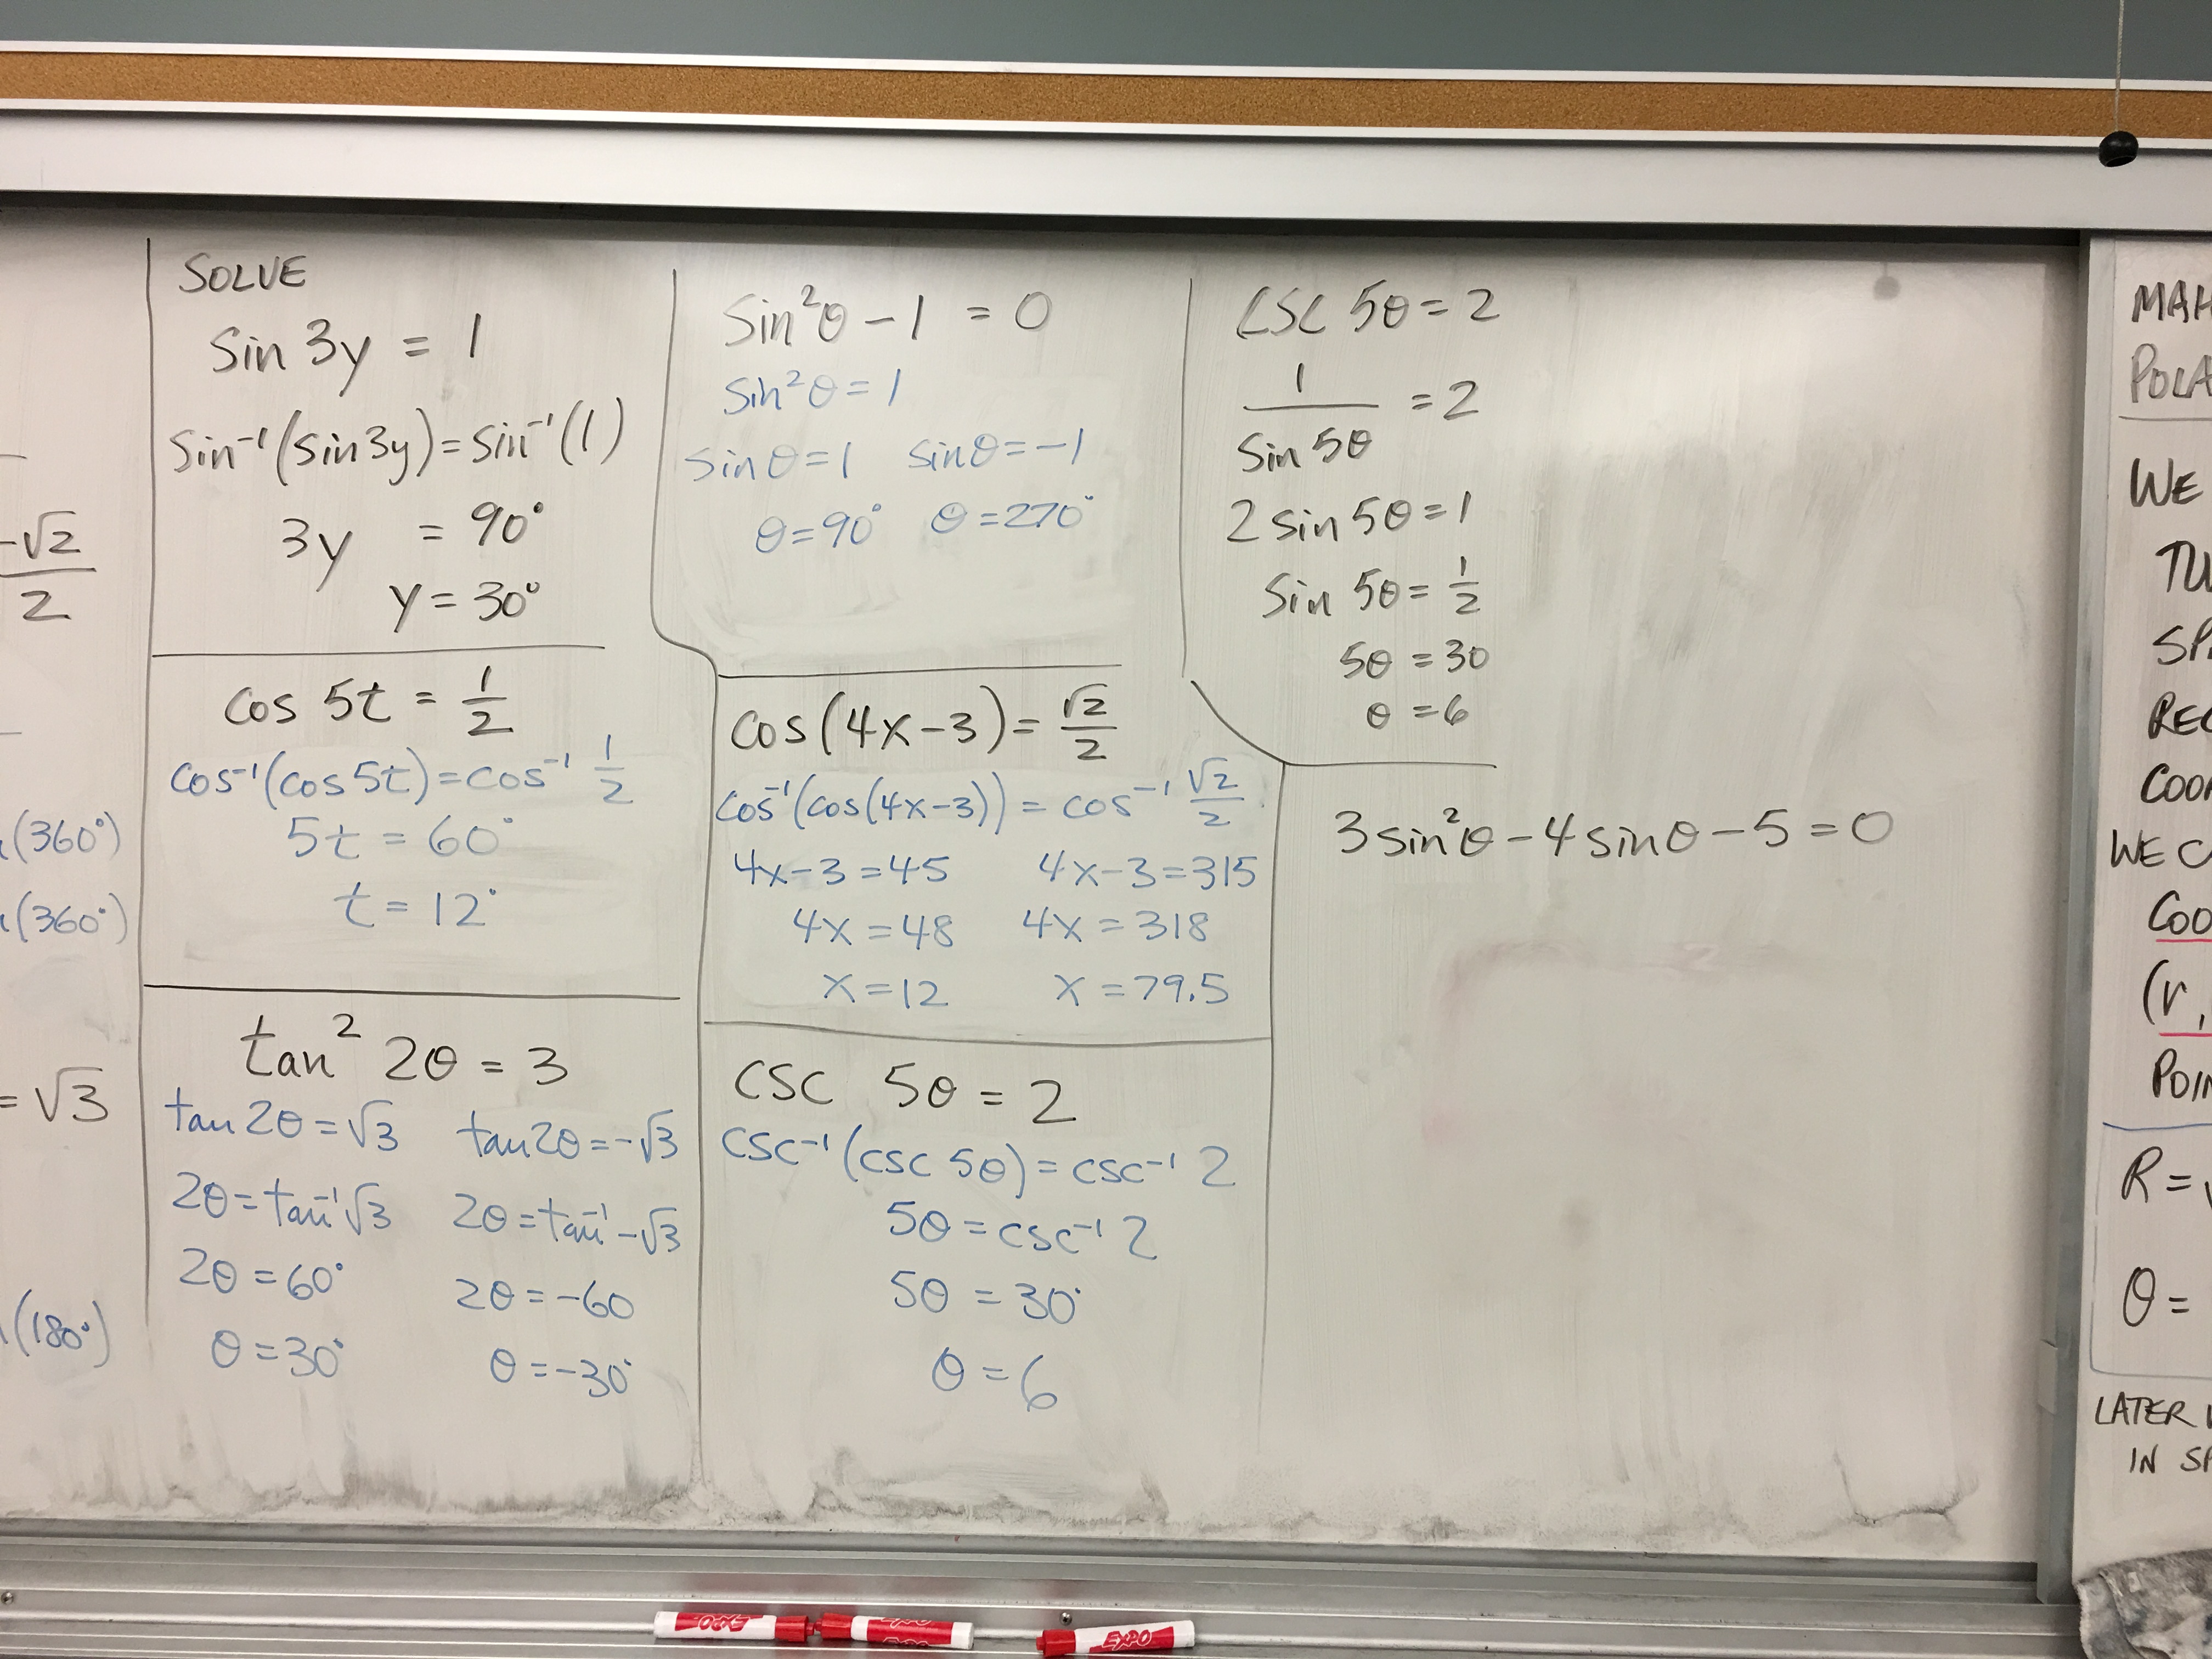 -√2/2
(360°)
(360°)
= √3
(180°)
SOLVE
sin 3y = 1
sin⁻¹(sin3y) = sin⁻¹(1)
3y = 90°
y = 30°
cos 5t = 1/2
cos⁻¹(cos 5t) = cos⁻¹ 1/2
5t = 60°
t = 12°
tan² 2θ = 3
tan 2θ = √3 tan2θ = -√3
2θ = tan⁻¹√3 2θ = tan⁻¹-√3
2θ = 60° 2θ = -60
θ = 30° θ = -30°
sin²θ - 1 = 0
sin²θ = 1
sinθ = 1 sinθ = -1
θ = 90° θ = 270°
cos(4x-3) = √2/2
cos⁻¹(cos(4x-3)) = cos⁻¹ √2/2
4x-3 = 45 4x-3 = 315
4x = 48 4x = 318
x = 12 x = 79.5
CSC 5θ = 2
csc⁻¹(csc 5θ) = csc⁻¹ 2
5θ = csc⁻¹ 2
5θ = 30°
θ = 6
CSC 5θ = 2
1/sin 5θ = 2
2 sin 5θ = 1
sin 5θ = 1/2
5θ = 30
θ = 6
3 sin²θ - 4 sinθ - 5 = 0
MAH
POLA
WE
TW
SPA
REC
COOR
WE C
COO
(r,
POIN
R = √
θ =
LATER
IN SP
EXPO
EXPO
EXPO